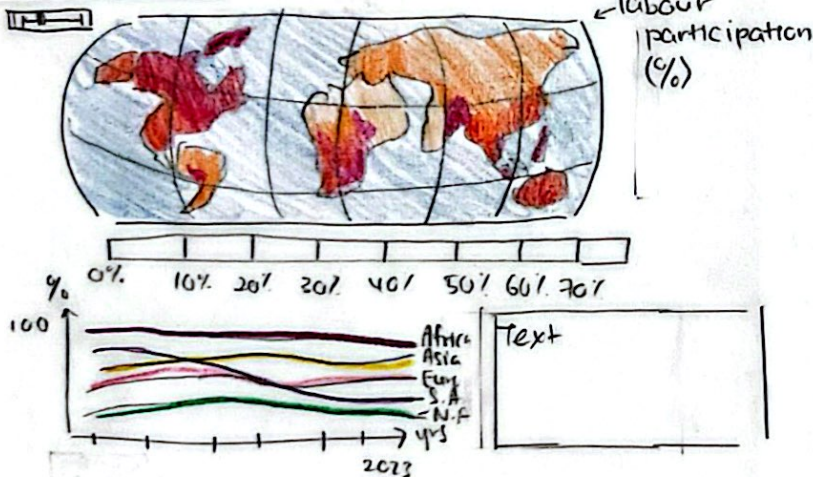 ←labour
participation
(%)
0% 10% 20% 30% 40% 50% 60% 70%
%
100
Africa
Asia
Eur
S.A
N.F
yrs
2023
Text